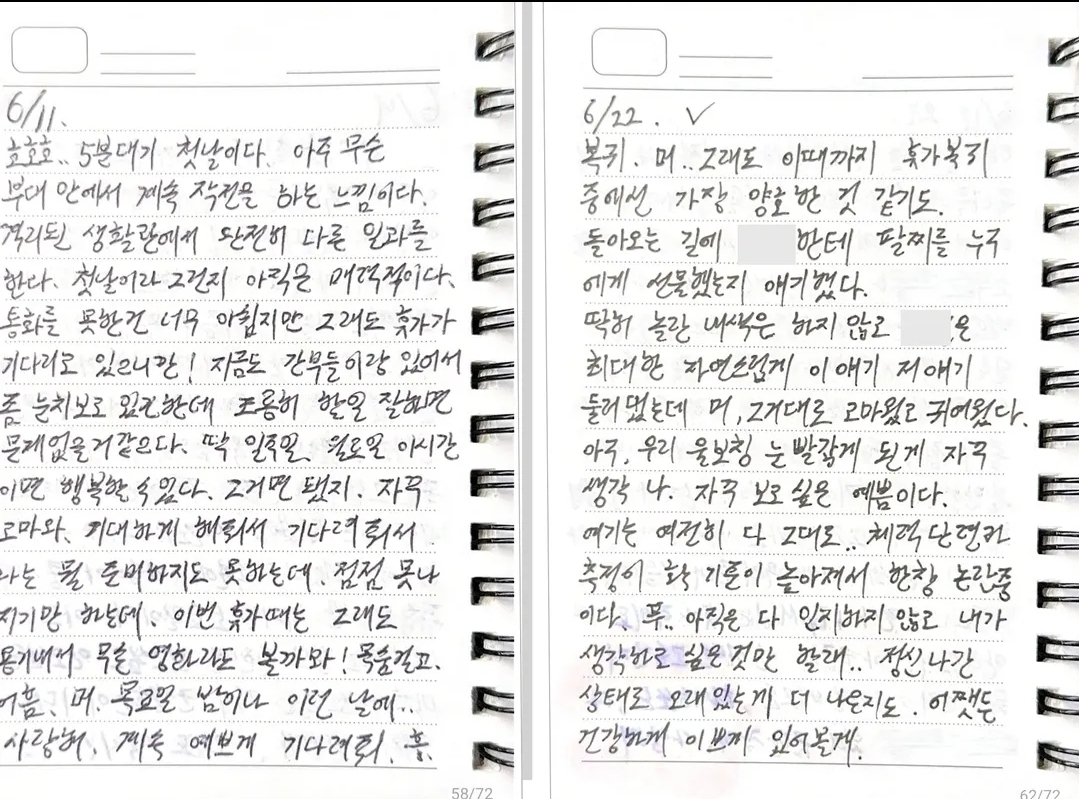 6/11.
호호호.. 5분대기 첫날이다. 아주 무슨
부대 안에서 계속 작전을 하는 느낌이다.
격리된 생활관에서 완전히 다른 일과를
한다. 첫날이라 그런지 아직은 매력적이다.
통화를 못한건 너무 아쉽지만 그래도 휴가가
기다리고 있으니깐! 지금도 간부들이랑 있어서
좀 눈치보고 있긴한데 조용히 할일 잘하면
문제없을거같으다. 딱 일주일, 월요일 이시간
이면 행복할 수 있다. 그거면 됐지. 자꾸
고마와. 기대하게 해줘서 기다려줘서
나는 뭘 준비하지도 못하는데. 점점 못나
지기만 하는데. 이번 휴가때는 그래도
용기내서 무슨 영화라도 볼까와! 목숨걸고.
어흠. 머. 목요일 밤이나 이런 날에..
사랑해. 계속 예쁘게 기다려줘. 흥.
58/72
6/22. ✓
복귀. 머.. 그래도 이때까지 휴가복귀
중에선 가장 양호한 것 같기도.
돌아오는 길에 한테 팔찌를 누구
에게 선물했는지 얘기했다.
딱히 놀란 내색은 하지 않고 은
최대한 자연스럽게 이 얘기 저 얘기
둘러댔는데 머, 그거대로 고마웠고 귀여웠다.
아주, 우리 울보칭 눈 빨갛게 된게 자꾸
생각 나. 자꾸 보고 싶은 예쁨이다.
여기는 여전히 다 그대로.. 체력단련과
측정이 확 기준이 높아져서 한창 논란중
이다. 푸.. 아직은 다 인지하지 않고 내가
생각하고 싶은것만 할래.. 정신 나간
상태로 오래있는게 더 나은지도. 어쨋든
건강하게 이쁘게 있어볼게.
62/72